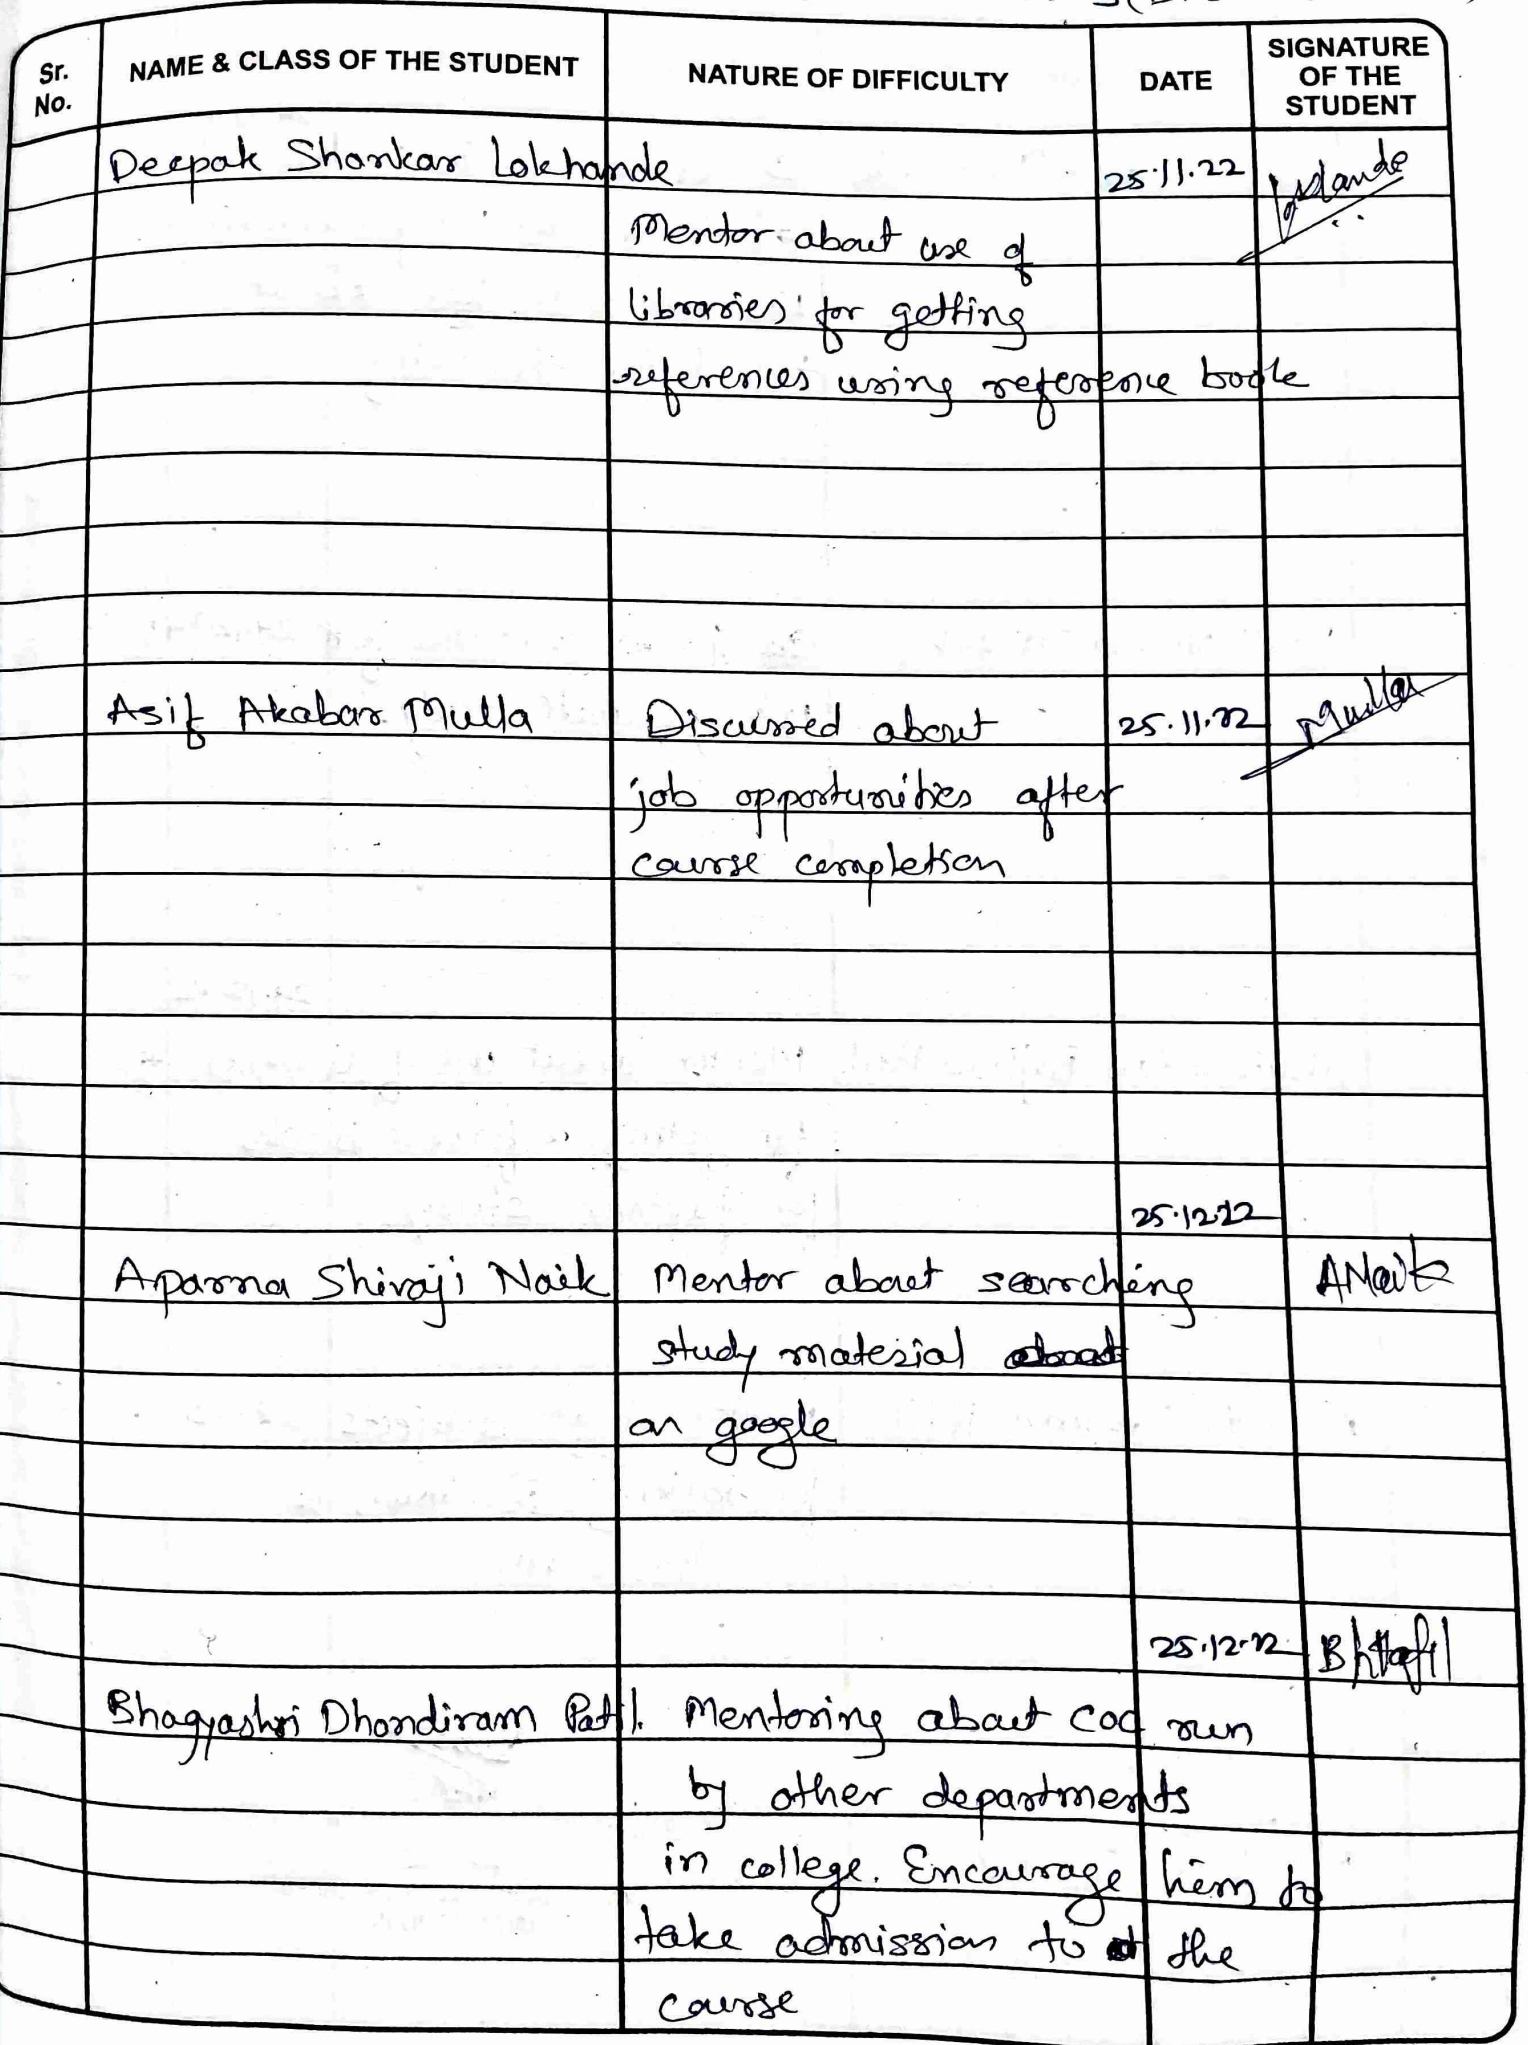 Sr. No.
NAME & CLASS OF THE STUDENT
NATURE OF DIFFICULTY
DATE
SIGNATURE OF THE STUDENT
Deepak Shankar Lokhande 25.11.22 Lokhande
Mentor about use of
libraries for getting
references using reference book
Asif Akabar Mulla Discussed about 25.11.22 Mulla
job opportunities after
course completion
25.12.22
Aparna Shivaji Naik Mentor about searching ANaik
study material
on google
25.12.22 BhPatil
Bhagyashri Dhondiram Patil. Mentoring about COC run
by other departments
in college. Encourage him to
take admission to the
course